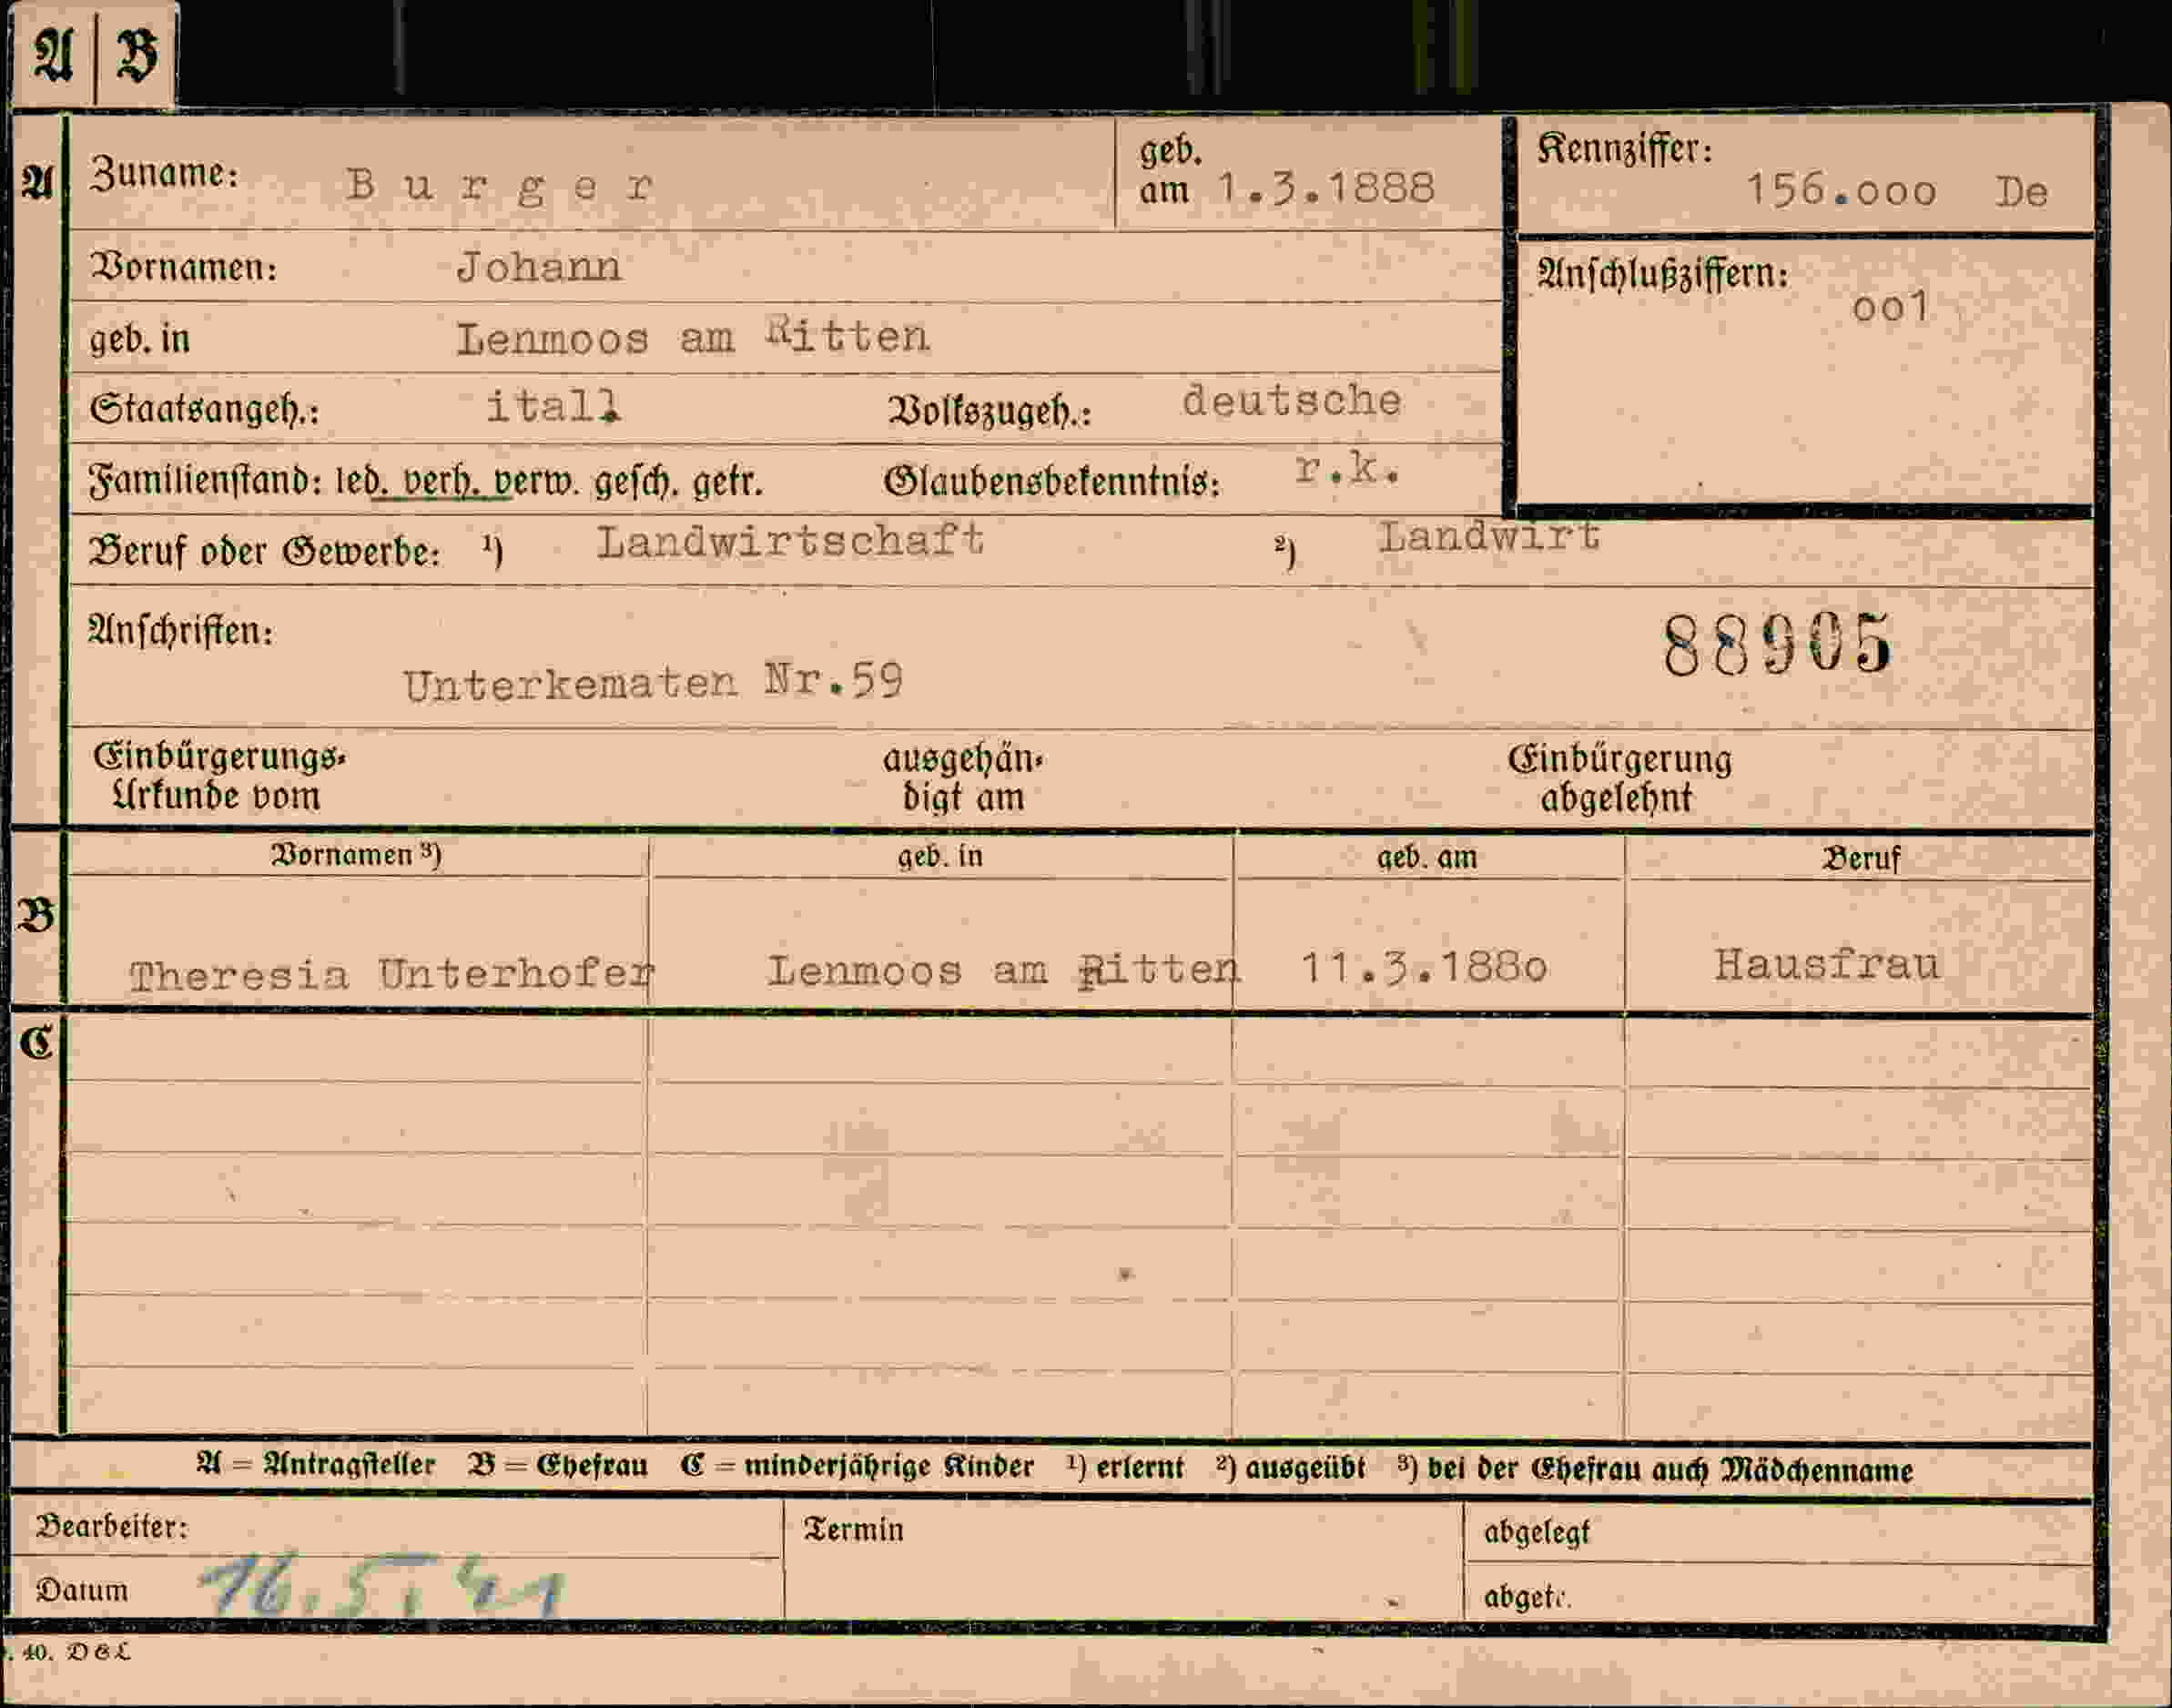 A | B
A Zuname: Burger geb. am 1.3.1888 Kennziffer: 156.ooo De
Vornamen: Johann Anschlußziffern: oo1
geb. in Lenmoos am Ritten
Staatsangeh.: ital. Volkszugeh.: deutsche
Familienstand: led. verh. verw. gesch. getr. Glaubensbekenntnis: r.k.
Beruf oder Gewerbe: ¹) Landwirtschaft ²) Landwirt
Anschriften: 88905
Unterkematen Nr.59
Einbürgerungs- ausgehän- Einbürgerung
Urkunde vom digt am abgelehnt
Vornamen ³) geb. in geb. am Beruf
B
Theresia Unterhofer Lenmoos am Ritten 11.3.188o Hausfrau
C
A = Antragsteller B = Ehefrau C = minderjährige Kinder ¹) erlernt ²) ausgeübt ³) bei der Ehefrau auch Mädchenname
Bearbeiter: Termin abgelegt
Datum 16.5.41 abgetr.
. 40. DGL